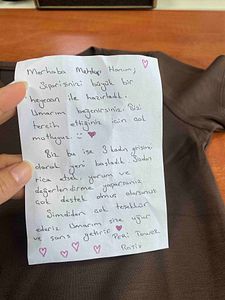 Merhaba Mehtap Hanım,
Siparişinizi büyük bir
heyecan ile hazırladık.
Umarım beğenirsiniz. Bizi
tercih ettiğiniz için çok
mutluyuz :)
Biz bu işe 3 kadın girişimci
olarak yeni başladık. Sizden
rica etsek, yorum ve
değerlendirme yaparsanız
çok destek olmuş olursunuz.
Şimdiden çok teşekkür
ederiz. Umarım size uğur
ve şans getirir